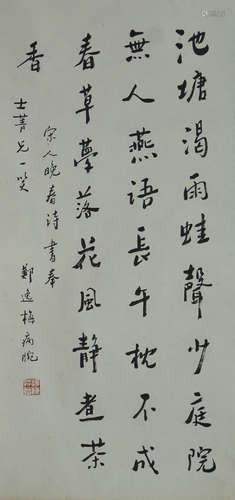 池塘渴雨蛙聲少庭院
無人燕語長午枕不成
春草夢落花風靜煮茶
香
宋人晚春诗書奉
士菁兄一笑
鄭逸梅病腕